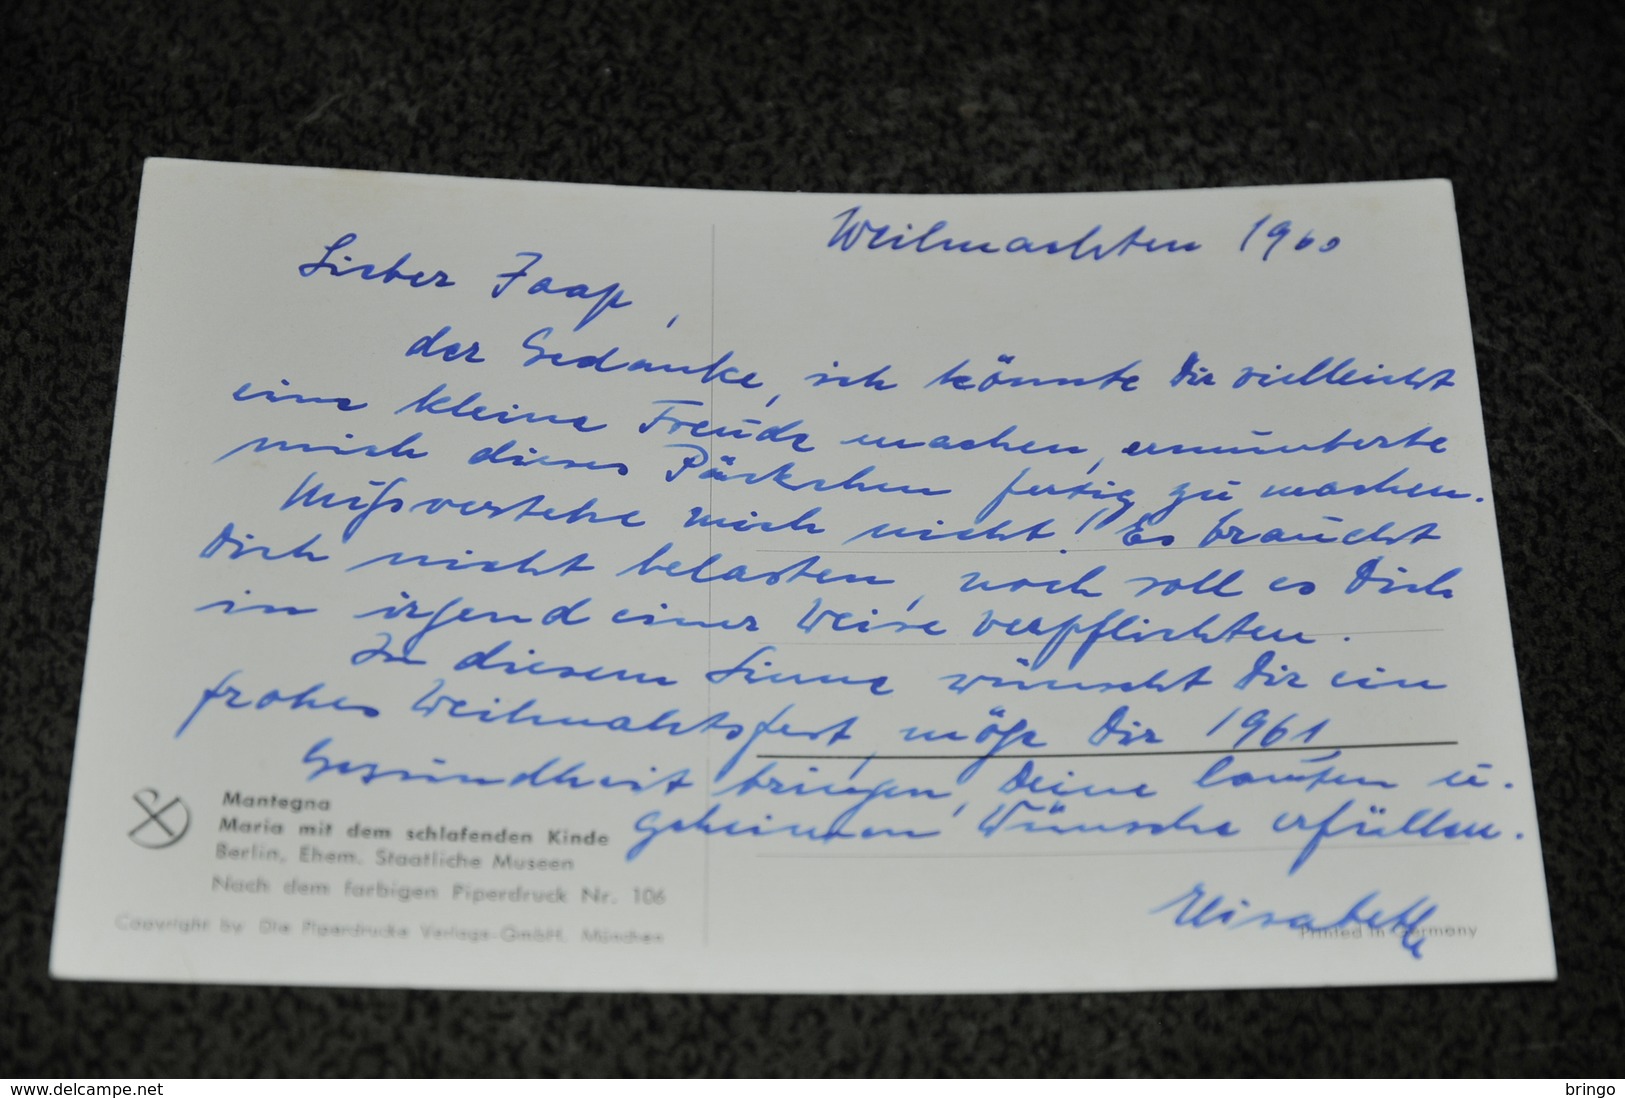 Weihnachten 1960
Lieber Jaap,
der Gedanke, ich könnte Dir vielleicht
eine kleine Freude machen, ermunterte
mich dieses Päckchen fertig zu machen.
Mißverstehe mich nicht! Es braucht
Dich nicht belasten, noch soll es Dich
in irgend einer Weise verpflichten.
In diesem Sinne wünscht Dir ein
frohes Weihnachtsfest, möge Dir 1961
Gesundheit bringen, Deine lauten u.
geheimen Wünsche erfüllen.
Elisabeth
Mantegna
Maria mit dem schlafenden Kinde
Berlin, Ehem. Staatliche Museen
Nach dem farbigen Piperdruck Nr. 106
Copyright by Die Piperdrucke Verlags-GmbH, München
Printed in Germany
www.delcampe.net
bringo